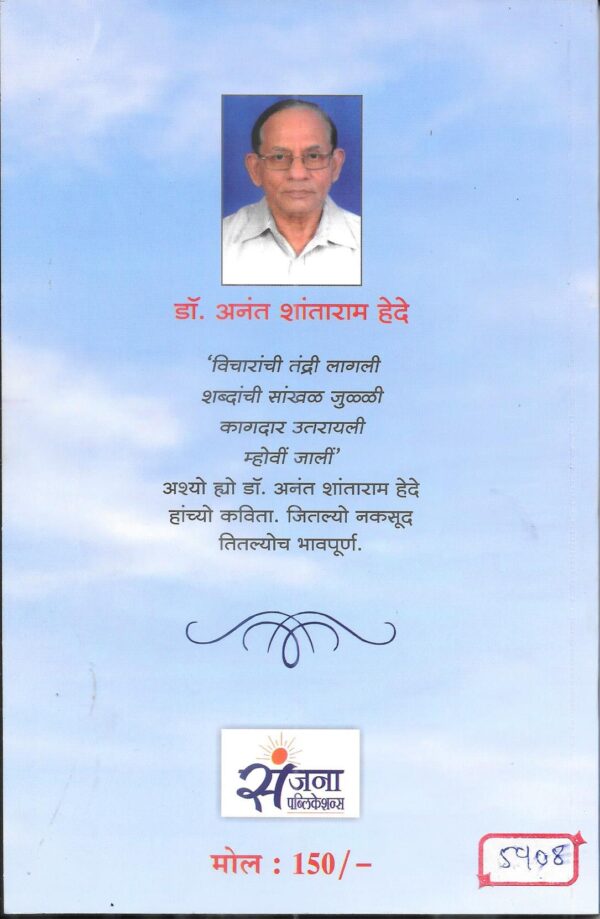 डॉ. अनंत शांताराम हेदे
'विचारांची तंद्री लागली
शब्दांची सांखळ जुळ्ळी
कागदार उतरायली
म्होवीं जालीं'
अश्यो ह्यो डॉ. अनंत शांताराम हेदे
हांच्यो कविता. जितल्यो नकसूद
तितल्योच भावपूर्ण.
संजना
पब्लिकेशन्स
मोल : 150/-
5908